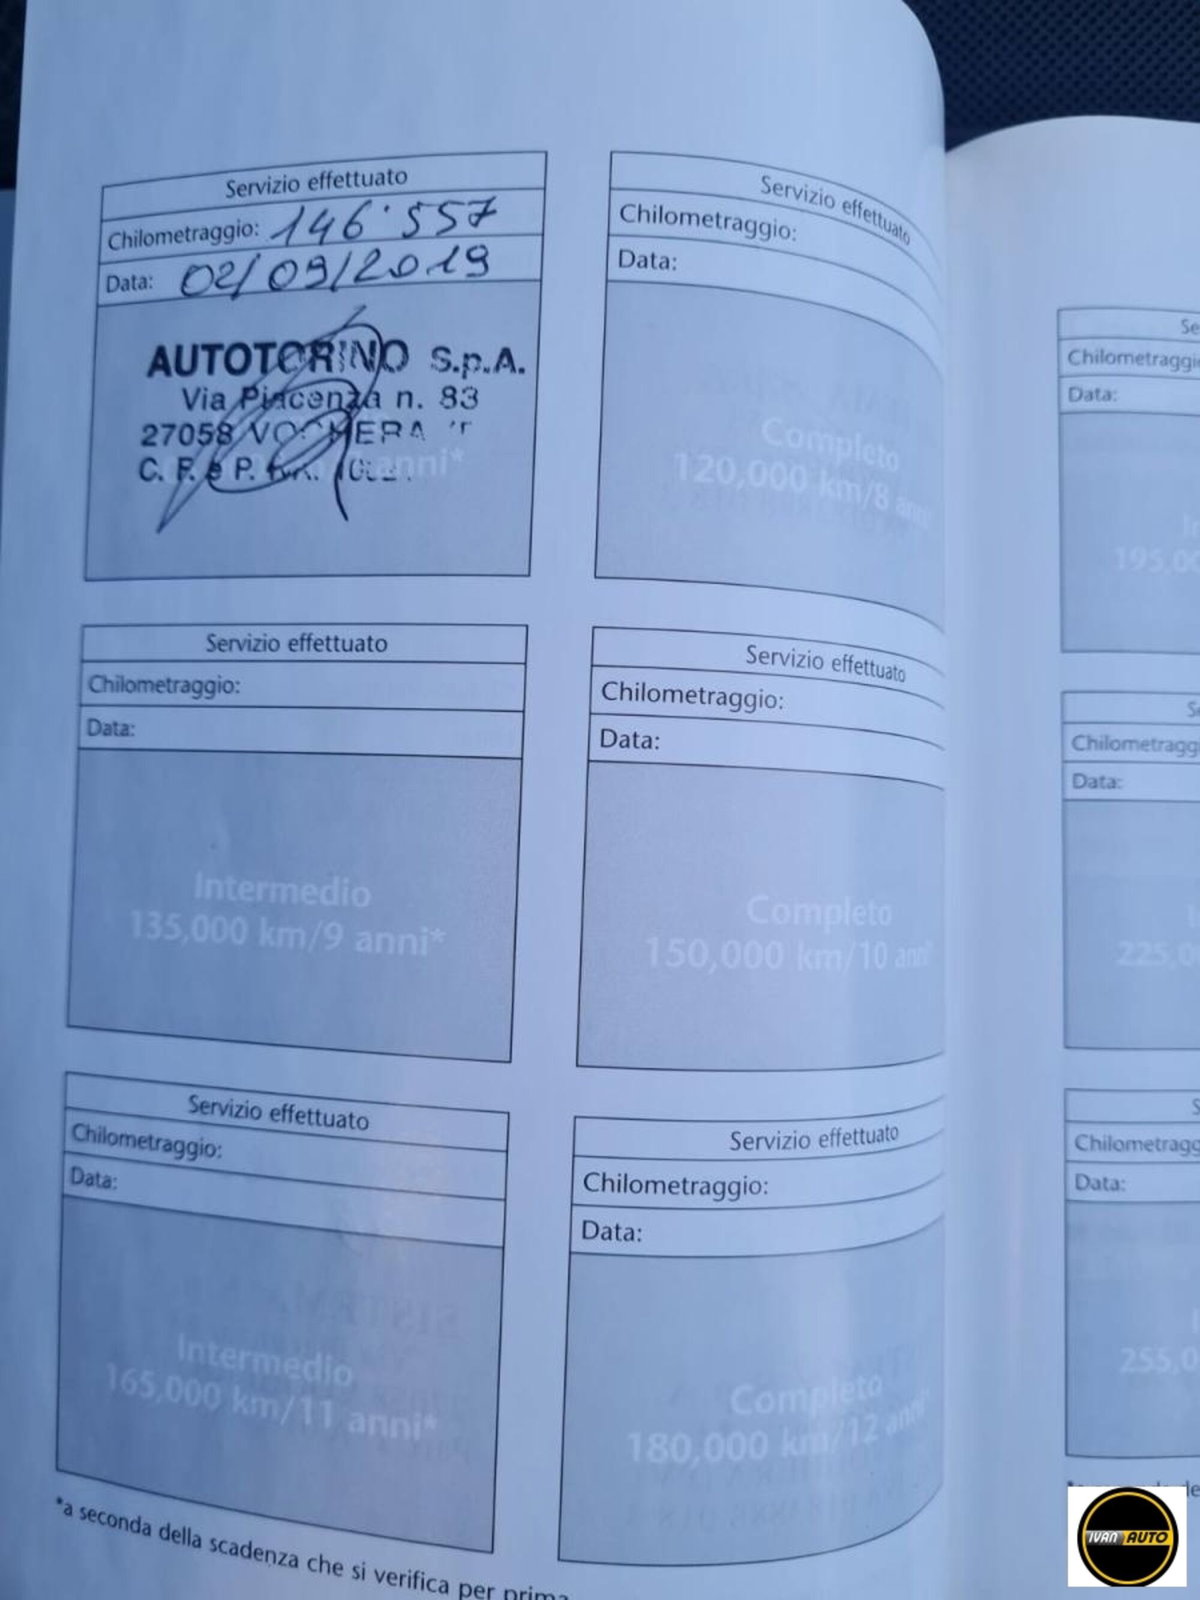 Servizio effettuato
Chilometraggio: 146.557
Data: 02/09/2019
AUTOTORINO S.p.A.
Via Piacenza n. 83
27058 VOGHERA
C. F. e P.
anni*
Servizio effettuato
Chilometraggio:
Data:
Completo
120,000 km/8 anni
Servizio effettuato
Chilometraggio:
Data:
Intermedio
135,000 km/9 anni*
Servizio effettuato
Chilometraggio:
Data:
Completo
150,000 km/10 anni*
Servizio effettuato
Chilometraggio:
Data:
Intermedio
165,000 km/11 anni*
Servizio effettuato
Chilometraggio:
Data:
Completo
180,000 km/12 anni*
*a seconda della scadenza che si verifica per prima
Se
Chilometraggio
Data:
195,00
Se
Chilometragg
Data:
225,0
S
Chilometragg
Data:
255,0
IVAN AUTO